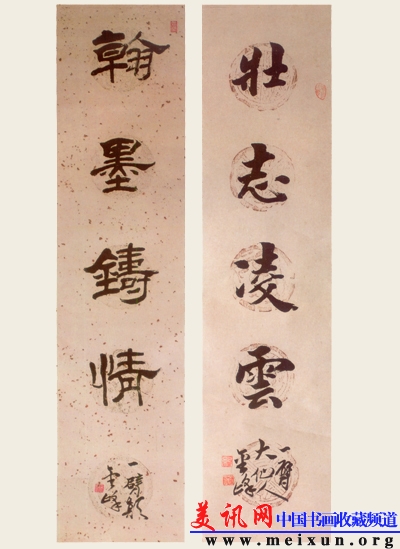 壯志凌雲
翰墨鑄情
美讯网 中国书画收藏频道
www.meixun.org